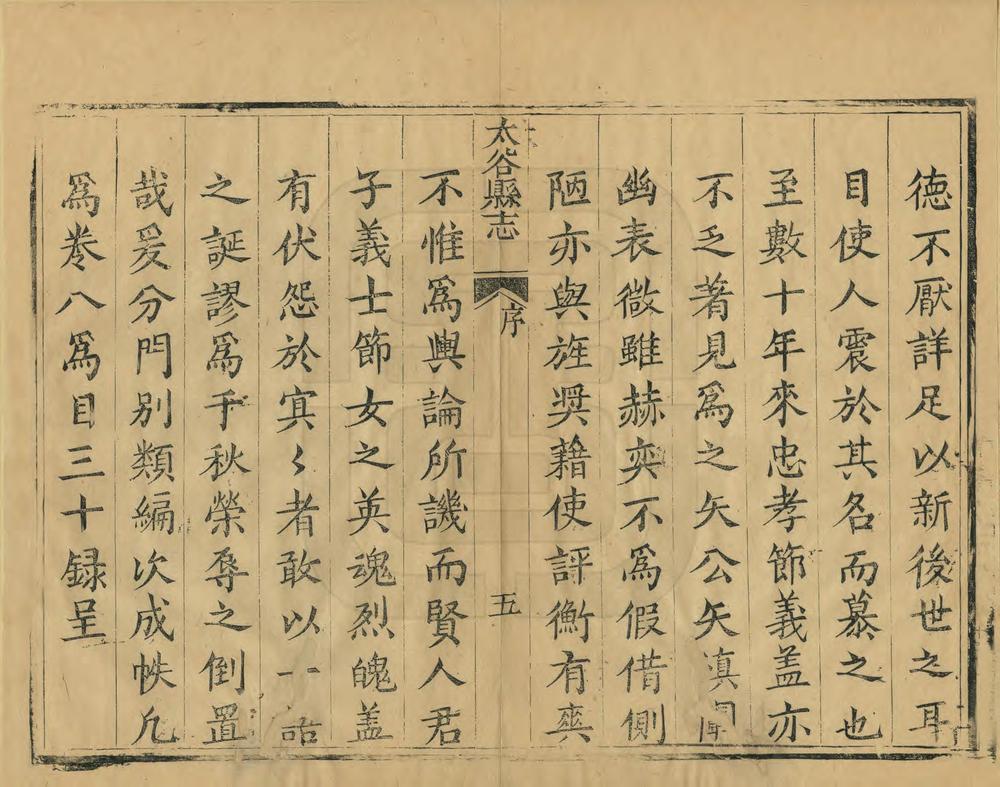 德不厭詳足以新後世之耳
目使人震於其名而慕之也
至數十年來忠孝節義盖亦
不乏著見爲之矢公矢滇闡
幽表微雖赫奕不爲假借側
陋亦與旌奨藉使評衡有爽
太谷縣志
序
五
不惟爲輿論所譏而賢人君
子義士節女之英魂烈魄盖
有伏怨於㝠〻者敢以一
之誕謬爲千秋榮辱之倒置
哉爰分門别類編次成帙凡
爲卷八爲目三十録呈